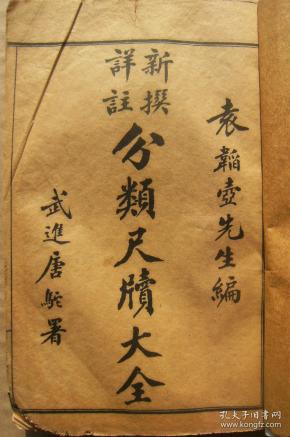 袁韜壺先生編
新撰
詳註
分類尺牘大全
武進唐駝署
孔夫子旧书网